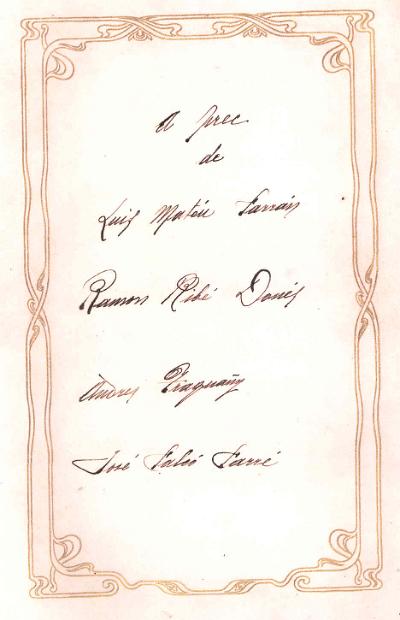 A prec
de
Luis Matéu Farrán
Ramon Ribé Donés
Andres Fraguany
José Falcó Farré